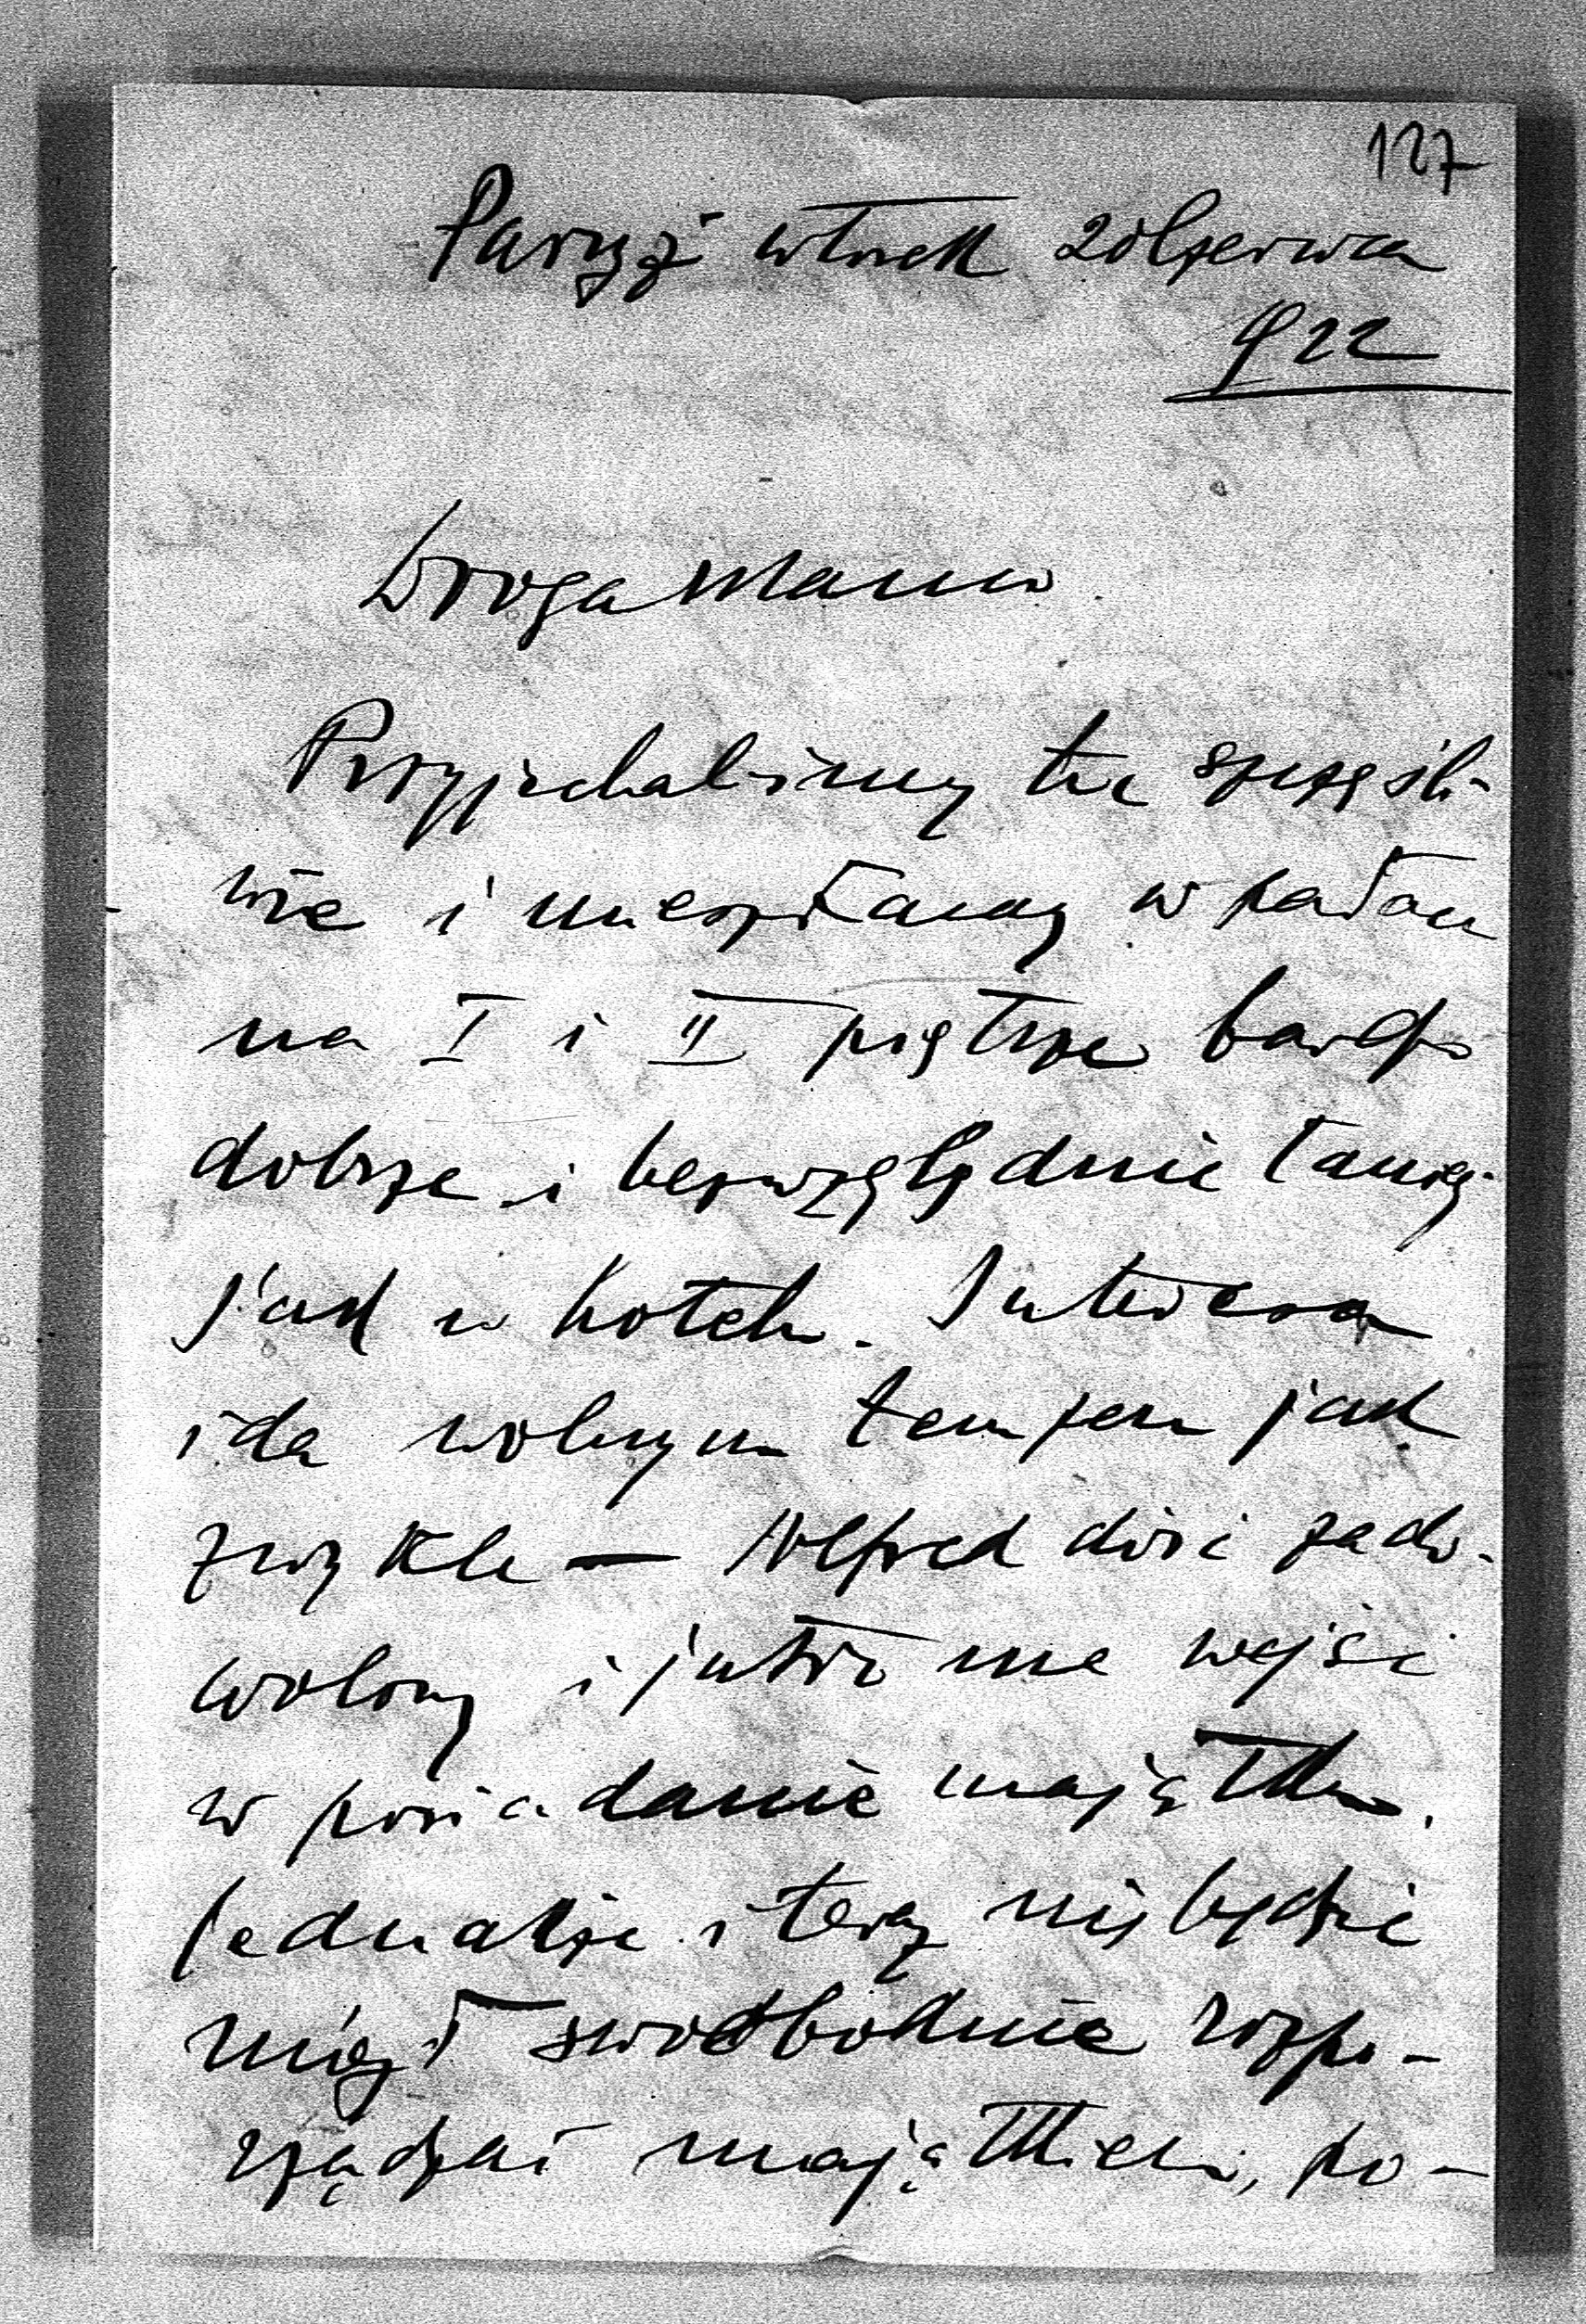 127
Paryż wtorek 20 czerwca
922
Droga Mamo
Przyjechaliśmy tu szczęśli-
wie i mieszkamy w pałacu
na I i II piętrze bardzo
dobrze i bezwzględnie taniej
jak w hotelu. Interesa
idą wolnym tempem jak
zwykle — Alfred dość zado-
wolony i jutro ma wejść
w posiadanie majątku.
Jednakże i teraz nie będzie
mógł swobodnie rozpo-
rządzać majątkiem, po-